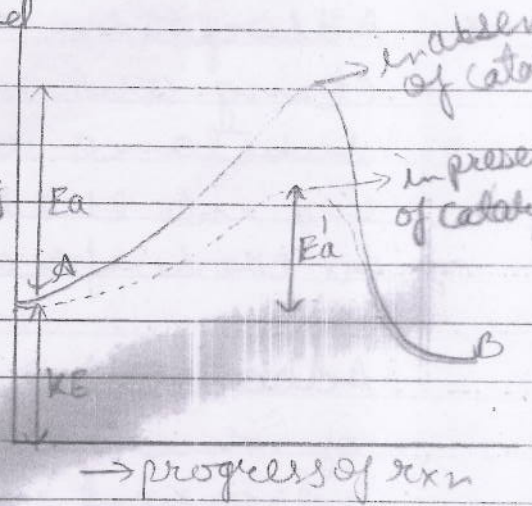 in absen
of cata
Ea
in presen
of catal
Ea'
A
B
KE
→ progress of rxn